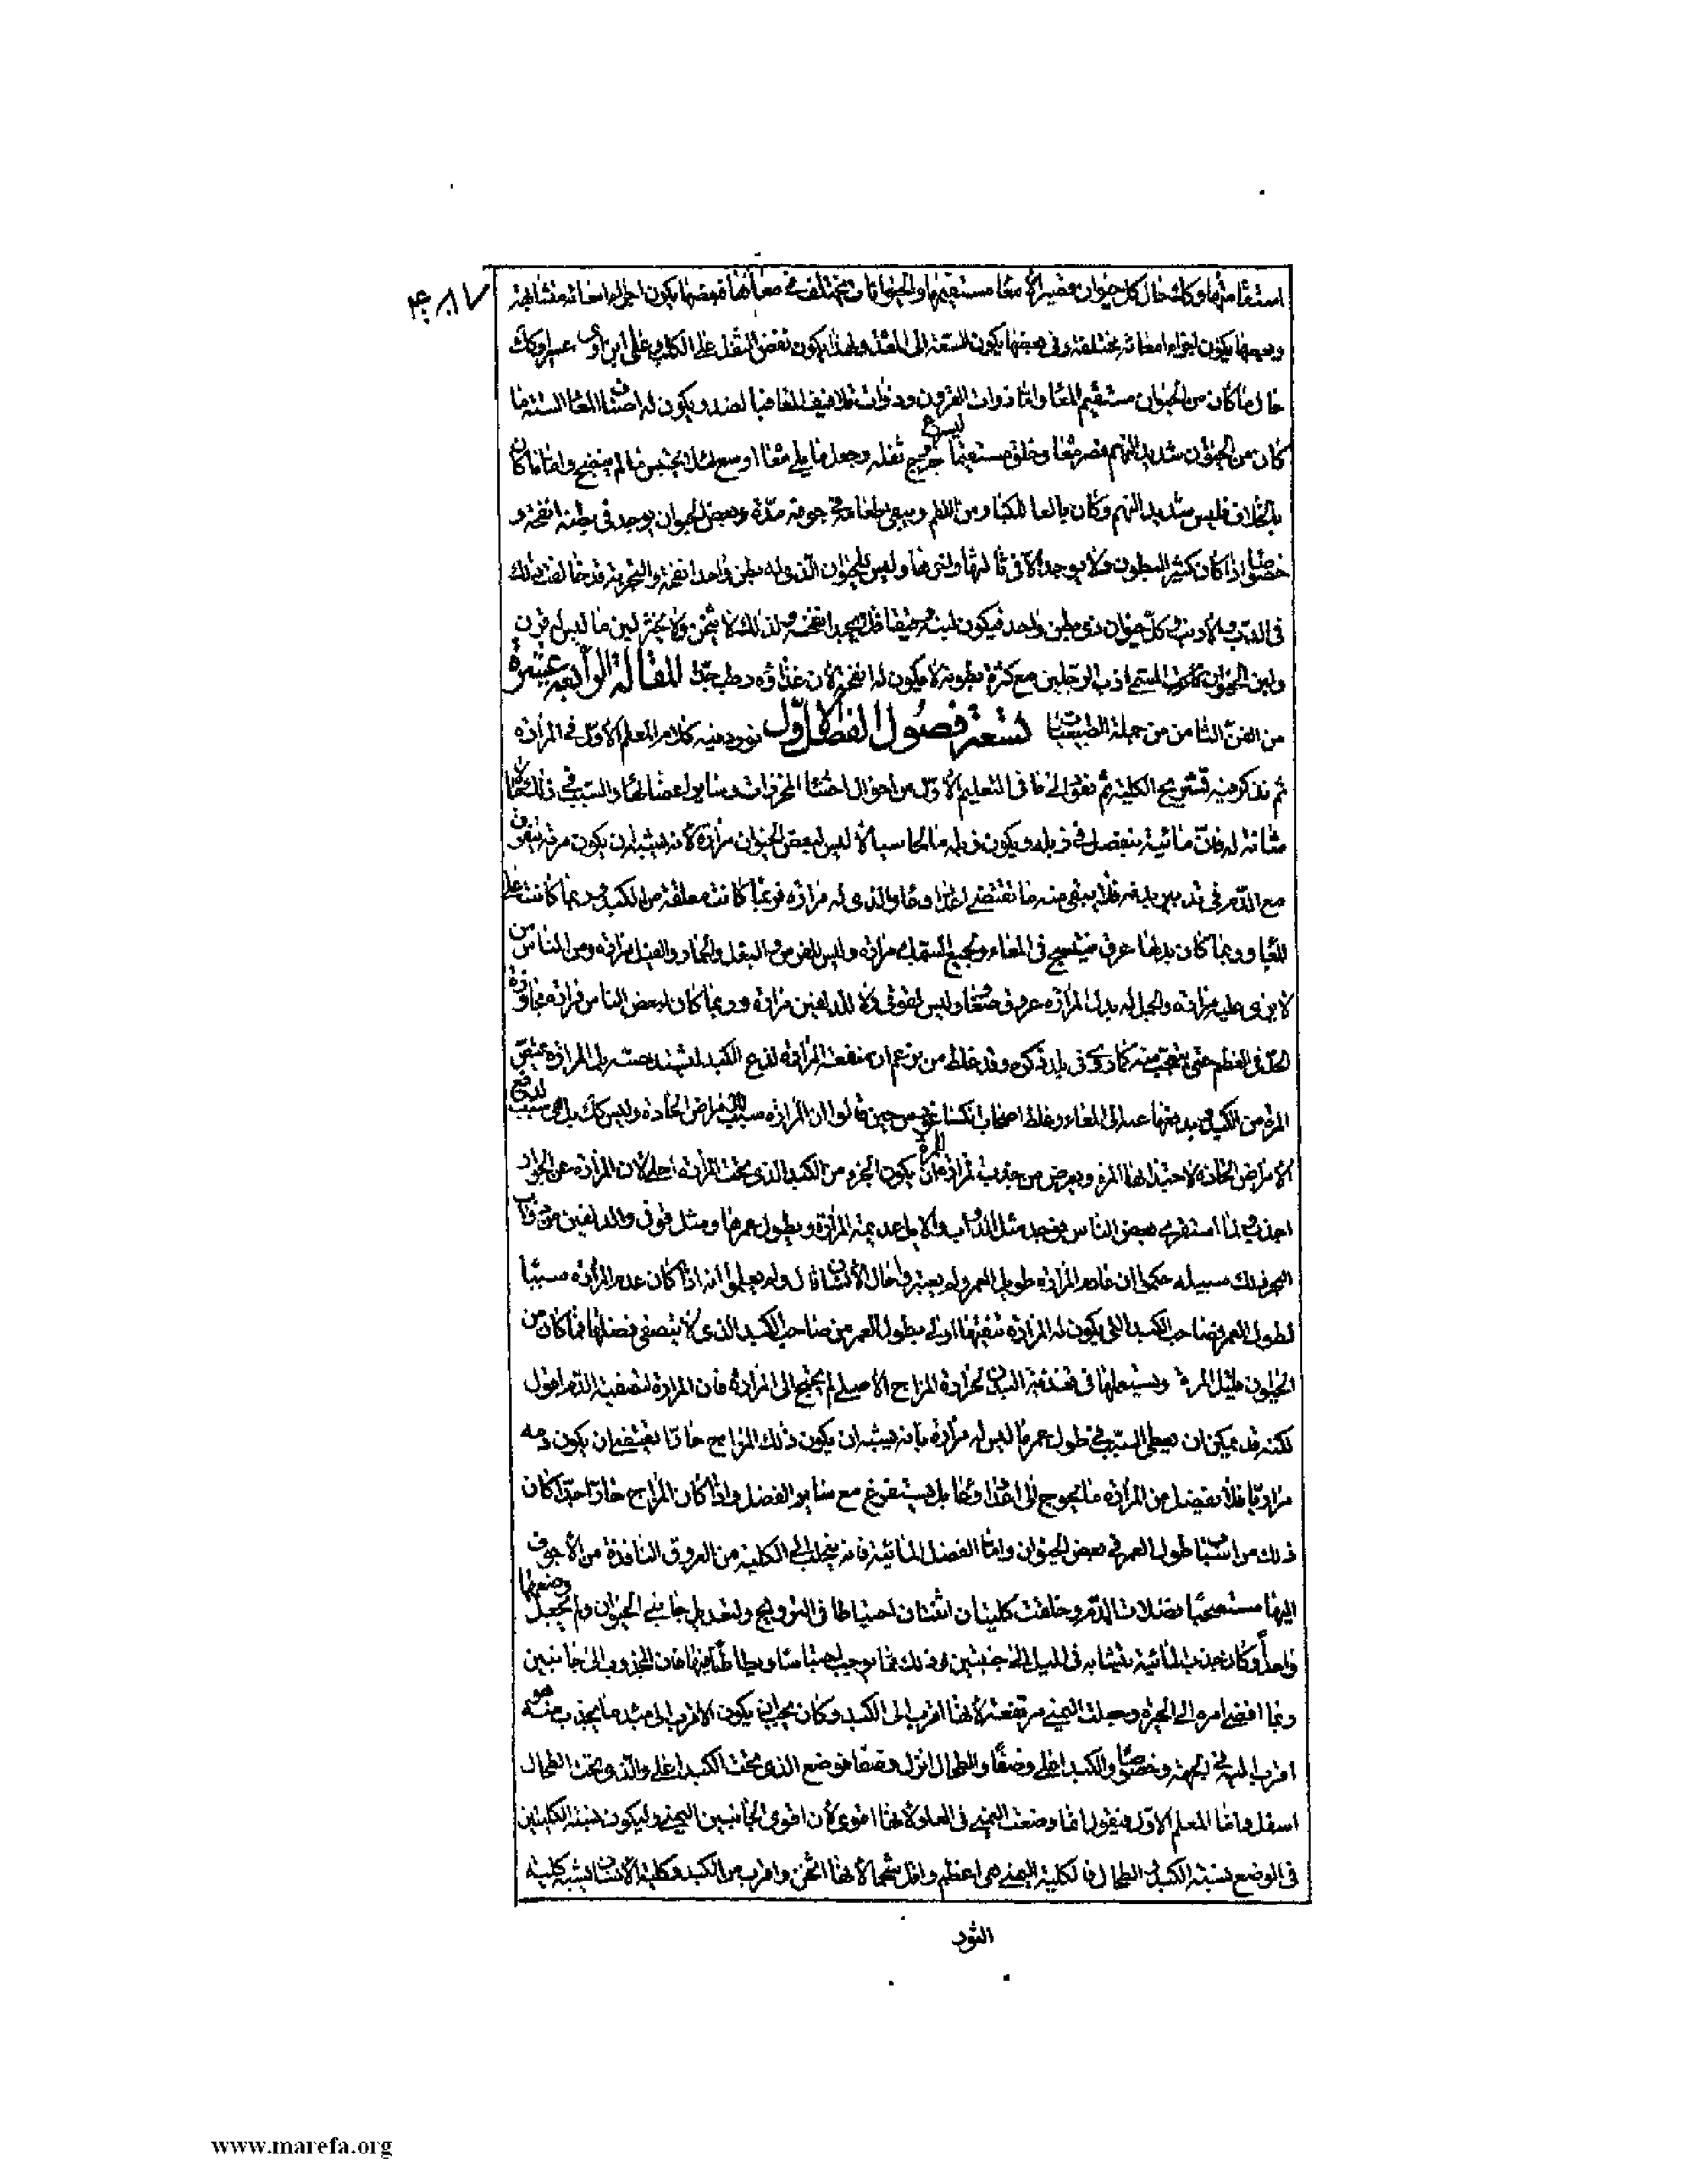 استقامتها وكك حال كل حيوان قصير الأمعا مستقيمها والحيوانات تختلف في معائها فبعضها يكون اجزاء امعائه متشابهة
وبعضها يكون اجزاء امعائه مختلفة وفى بعضها يكون السعة الى المقعد ولهذا يكون نفض الثفل على الكلب وعلى ابن اوى عسرا وكك
حال ما كان من الحيوان مستقيم المعا واما ذوات القرون وذوات تلافيف المعا فبالضد ويكون له اصناف المعا الستة فما
كان من الحيوان شديد النهم قصر معا وخلق مستقيما ليسرع خروج ثفله وجعل ما يلى معا اوسع لئلا يحتبس ما لم ينضج واما ما كان
بالخلاف فليس شديد النهم وكان بالعا للكبار من اللقم ويبقى طعامه فى جوفه مدة وبعض الحيوان يوجد فى بطنه انفحة و
خصوصا اذا كان كثير البطون ولا يوجد الا فى ثالثها وليس للحيوان الذى له بطن واحد انفحة والتجربة قد خالفت ذلك
فى الدب والارنب كل حيوان ذى بطن واحد فيكون لبنه رقيقا قل يجد انفحة ولذلك لا يثخن ولا يخثر لبن ما ليس له قرن
ولبن الحيوان المسمى اذب الرجلين مع كثرة بطونه لا يكون له انفحة لان غذاؤه رطب جدا المقالة الرابعة عشرة
من الفن الثامن من جملة الطبيعيات تسعة فصول الفصل الاول نورد فيه كلام المعلم الاول فى المرارة
ثم نذكر فيه تشريح الكلية ثم نعود الى ما فى التعليم الاول من احوال احشا المحززات وساير اعضائها والسبب فى ذلك ما لا
مثانة له فلان مائيته تنفصل فى ذبله ويكون ذبله مالحا سيالا ليس لبعض الحيوان مرارة لانه يشبه ان يكون مرته تتفرق
مع الدم فى تدبير بدنه فلا يبقى منه ما تقتضى افراز وعا والذى له مرارة فربما كانت معلقة من الكبد وربما كانت على
المعا وربما كان بدلها عرق منتسج فى المعاء ولجميع السمك مرارة وليس للفرس والبغل والحمار والفيل مرارة ومن الناس من
لا يرى عليه مرارة والجمل له بدل المرارة عروق صغار وليس لقوقى ولا للدلفين مرارة وربما كان لبعض الناس مرارة مجاوزة
الحد فى العظم حتى يتعجب منه كما روى فى بلد ذكره وقد غلط من زعم ان منفعة المرارة لذع الكبد ليشتد حسه بل المرارة تنقى
المرة من الكبد وبدفعها عنه الى المعاء وغلط اصحاب انكساغورس حين قالوا ان المرارة سبب للامراض الحادة وليس كك بل هى سبب لدفع
الامراض الحادة لاجتذابها المرة ويعرض من جذب المرارة المرة ان يكون الجزو من الكبد الذى تحت المرارة احلى لان المرارة عن الجوار
اجذب ولما استقرى بعض الناس فوجد مثل الدواب والايل عديمة المرارة ويطول عمرها ومثل قوقى والدلفين من دواب
البحر ذلك سبيله حكموا ان عادم المرارة طويل العمر ولم يعتبروا حال الانسان قال ولم يعلموا انه اذا كان عدم المرارة سببا
لطول العمر فصاحب الكبد التى يكون له المرارة تنقيها اولى بطول العمر من صاحب الكبد الذى لا يتصفى فضلها فما كان من
الحيوان قليل المرة ويستعملها فى تغذية البدن لحرارة المزاج الاصلى لم يحتج الى المرارة فان المرارة لتصفية الدم اقول
لكنه قد يمكن ان يعطى السبب فى طول عمر ما ليس له مرارة بانه يشبه ان يكون ذلك المزاج حارا يقتضى ان يكون دمه
مراريا فلا يفضل من المرارة ما يحوج الى اعداد وعا بل يستفرغ مع سابر الفضل واذا كان المزاج حارا جدا كان
ذلك من اسباب طول العمر فى بعض الحيوان واما الفضل المائية فانه ينجلب الى الكلية من العروق النافذة من الاجوف
اليها مستصحبا فضلات الدم وخلقت كليتان اثنتان احتياطا فى الترويج ولتعديل جانبى الحيوان ولم يجعل وضعهما
واحدا وكان جذب المائية يتشابه فى الميل الى جنبتين وذلك مما يوجب فان المجذوب الى جانبين
ربما افضى امره الى الحيرة وجعلت اليمنى مرتفعة لانها اقرب الى الكبد وكان يجب ان يكون الاقرب الى مبدء ما يجذب منه هو
اقرب اليه فى الجهة وخصوصا والكبد اعلى وضعا والطحال انزل وضعا فوضع الذى تحت الكبد اعلى والذى تحت الطحال
اسفل واما المعلم الاول فيقول انما وضعت اليمنى فى العلو لانها اقوى لان اقوى الجانبين اليمنى وليكون نسبة الكليتين
فى الوضع نسبة الكبد والطحال فالكلية اليمنى هى اعظم واقل شحما لانها اثخن واقرب من الكبد وكلية الانسان يشبه كلية
الثور
www.marefa.org